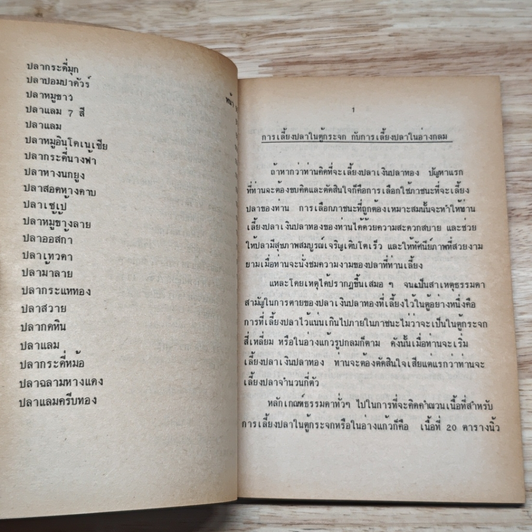 ปลากระดี่มุก
ปลาปอมปาดัวร์
ปลาหมูขาว
ปลาแลม 7 สี
ปลาแลม
ปลาหมูอินโดเนเซีย
ปลากระดี่นางฟ้า
ปลาหางนกยูง
ปลาสอดหางดาบ
ปลาเซเป้
ปลาหมูข้างลาย
ปลาออสกา
ปลาเทวดา
ปลาม้าลาย
ปลากระแหทอง
ปลาสวาย
ปลากดหิน
ปลาแลม
ปลากระดี่หม้อ
ปลาฉลามหางแดง
ปลาแลมครีบทอง
หน้า
1
การเลี้ยงปลาในตู้กระจก กับการเลี้ยงปลาในอ่างกลม
ถ้าหากว่าท่านคิดที่จะเลี้ยงปลาเงินปลาทอง ปัญหาแรก
ที่ท่านจะต้องขบคิดและตัดสินใจก็คือการเลือกใช้ภาชนะที่จะเลี้ยง
ปลาของท่าน การเลือกภาชนะที่ถูกต้องเหมาะสมนั้นจะทำให้ท่าน
เลี้ยงปลาเงินปลาทองของท่านได้ด้วยความสะดวกสบาย และช่วย
ให้ปลามีสุขภาพสมบูรณ์เจริญเติบโตเร็ว และให้ทัศนียภาพที่สวยงาม
ยามเมื่อท่านจะนั่งชมความงามของปลาที่ท่านเลี้ยง
และโดยเหตุได้ปรากฏขึ้นเสมอ ๆ จนเป็นสาเหตุธรรมดา
สามัญในการตายของปลาเงินปลาทองที่เลี้ยงไว้ในตู้อย่างหนึ่งคือ
การที่เลี้ยงปลาไว้แน่นเกินไปภายในภาชนะไม่ว่าจะเป็นในตู้กระจก
สี่เหลี่ยม หรือในอ่างแก้วรูปกลมก็ตาม ดังนั้นเมื่อท่านจะเริ่ม
เลี้ยงปลาเงินปลาทอง ท่านจะต้องตัดสินใจเสียแต่แรกว่าท่านจะ
เลี้ยงปลาจำนวนกี่ตัว
หลักเกณฑ์ธรรมดาทั่วๆ ไปในการที่จะคิดคำนวนเนื้อที่สำหรับ
การเลี้ยงปลาในตู้กระจกหรือในอ่างแก้วก็คือ เนื้อที่ 20 ตารางนิ้ว